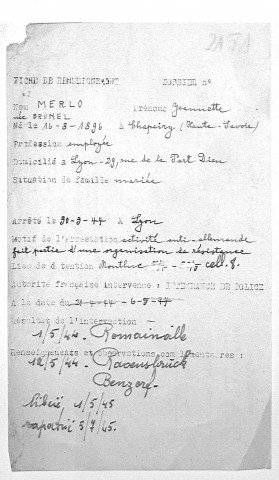 2151
FICHE DE RENSEIGNEMENT DOSSIER n°
Nom MERLO Prénoms Jeannette
née BRUNEL
Né le 16-8-1896 à Chapeiry (Haute-Savoie)
Profession employée
Domicilié à Lyon - 29, rue de la Part Dieu
Situation de famille mariée
Arrêté le 30-3-44 à Lyon
Motif de l'arrestation activité anti-allemande
fait partie d'une organisation de résistance
Lieu de détention Montluc cell. 8.
Autorité française intervenue : INTENDANCE DE POLICE
A la date du 6-8-44
Résultat de l'intervention
1/5/44 - Romainville
Renseignements et observations complémentaires :
12/5/44 - Ravensbrück
Benzorf
libéré, 1/5/45
rapatrié 5/7/45.